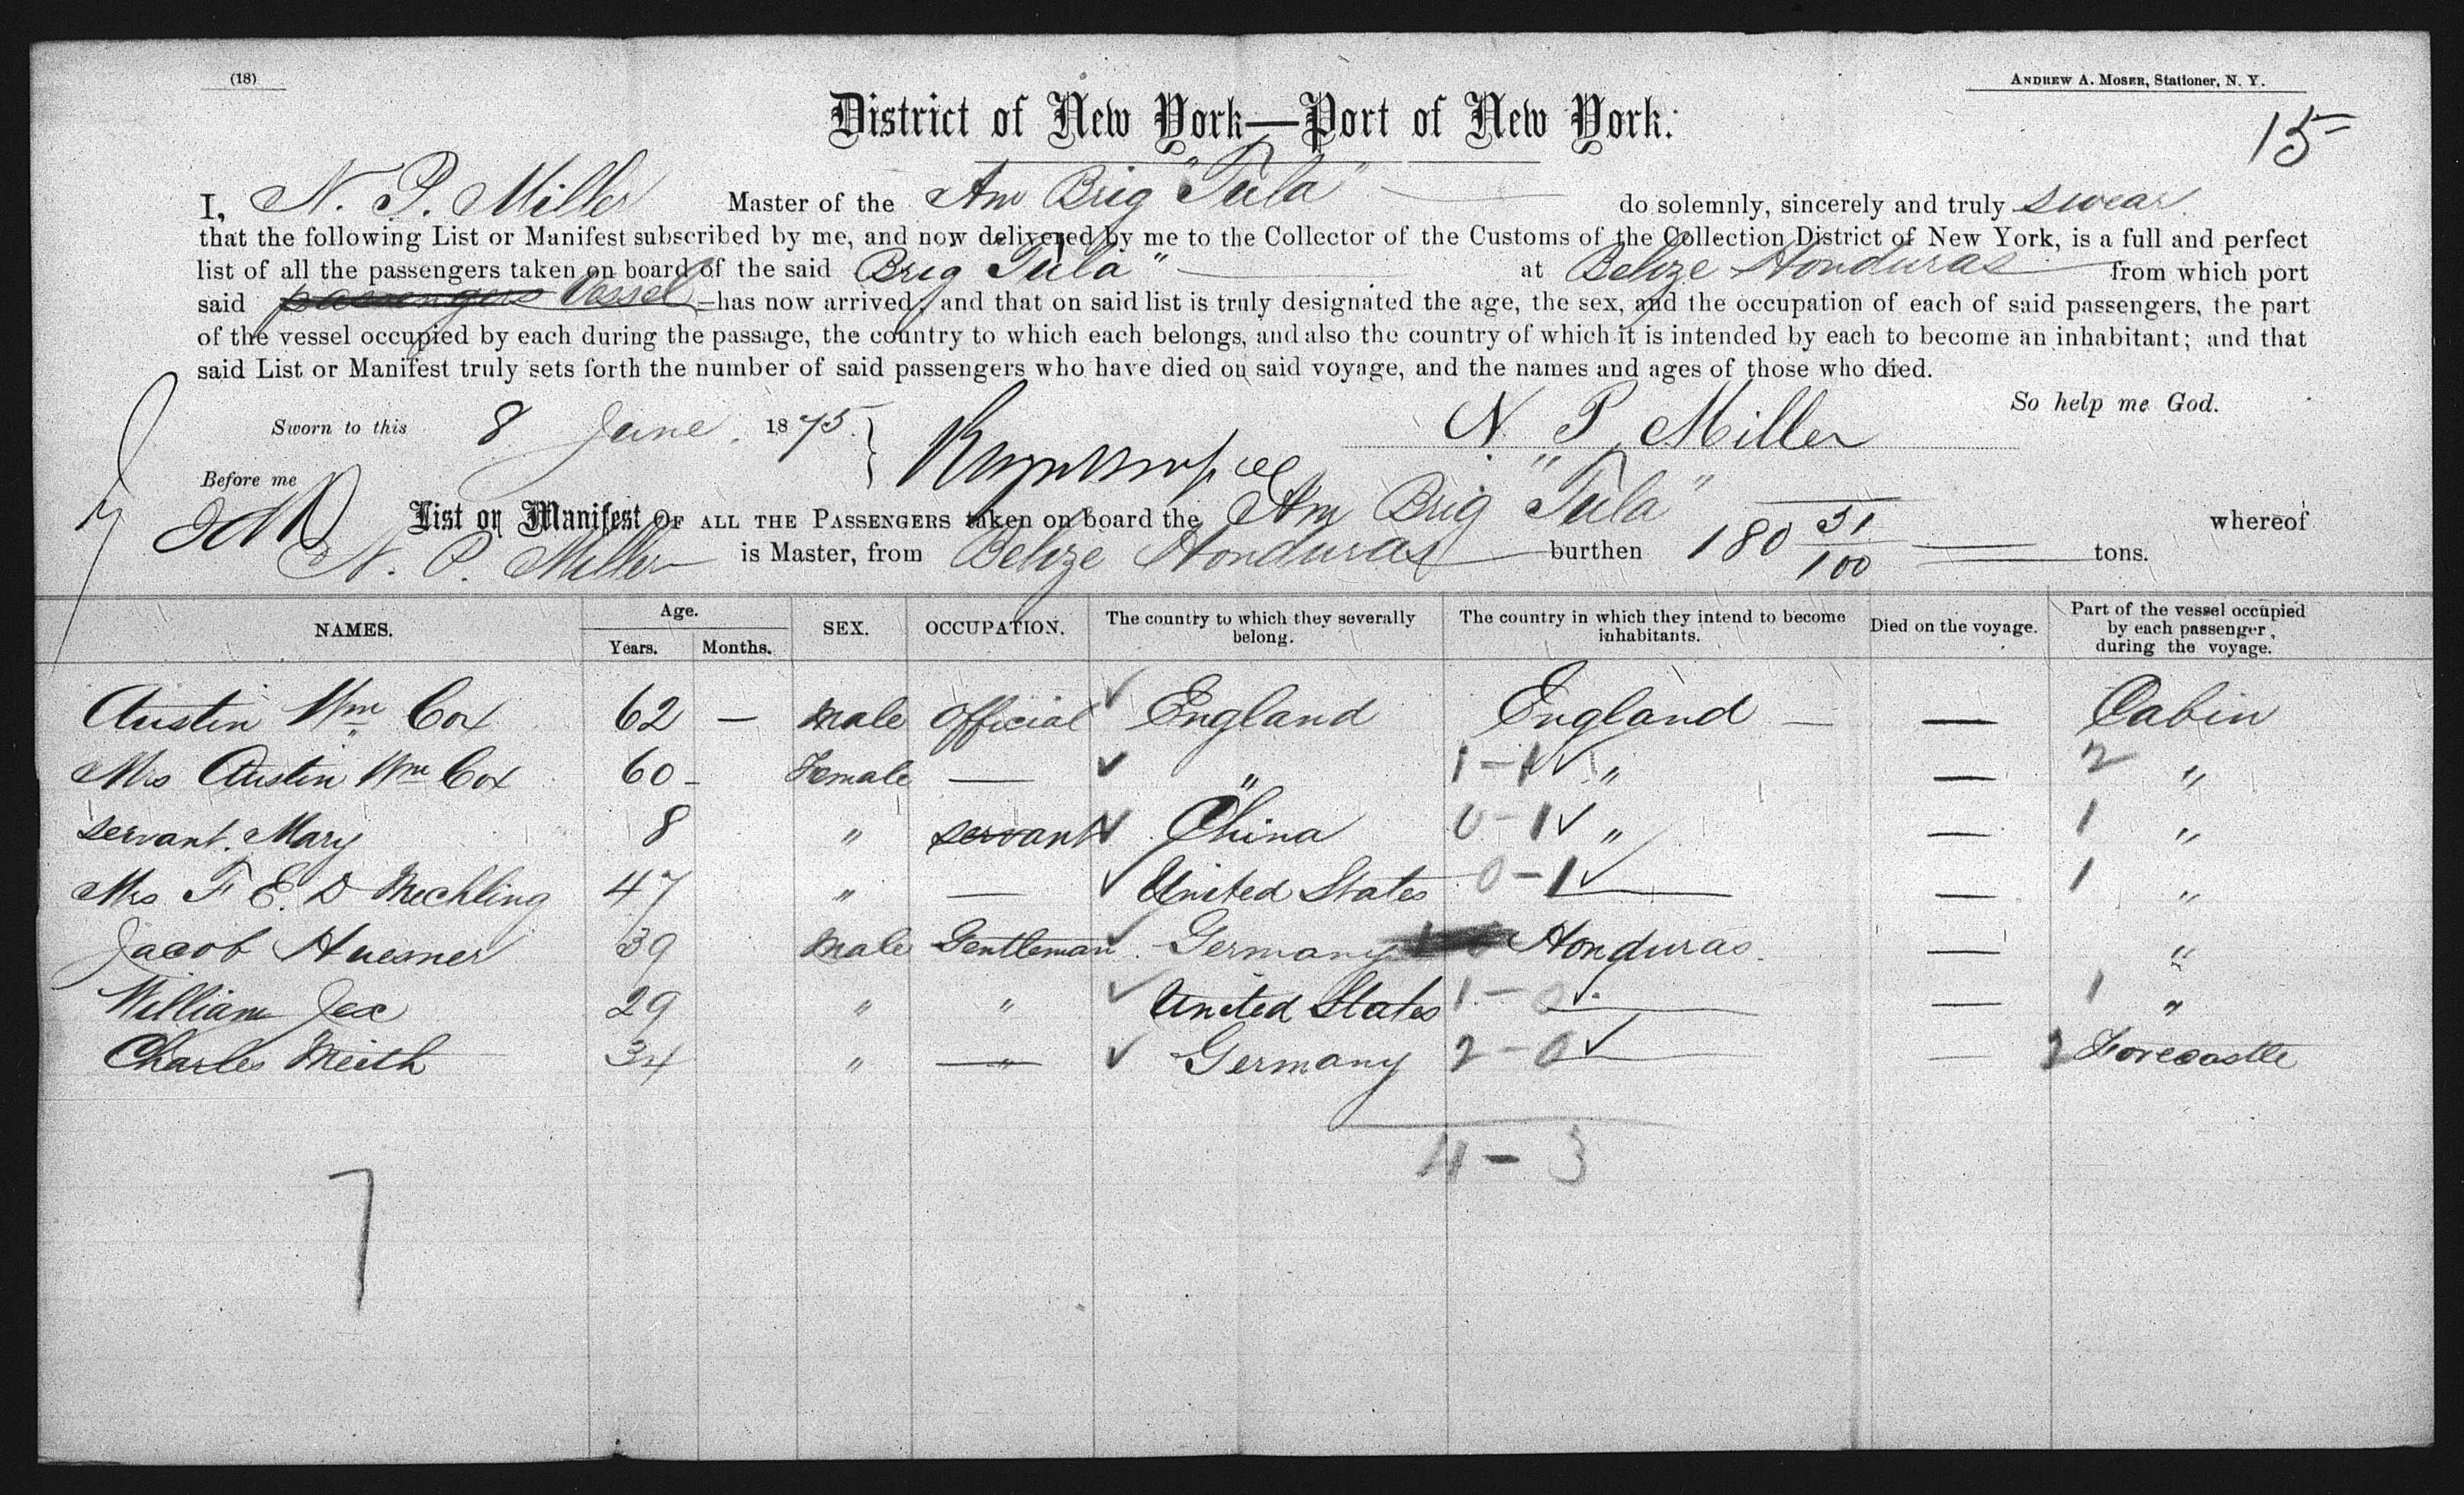 (18)
ANDREW A. MOSER, Stationer, N. Y.
District of New York—Port of New York.
15
I, N. P. Miller Master of the Am Brig "Tula" do solemnly, sincerely and truly swear
that the following List or Manifest subscribed by me, and now delivered by me to the Collector of the Customs of the Collection District of New York, is a full and perfect
list of all the passengers taken on board of the said Brig "Tula" at Belize Honduras from which port
said passengers Vessel has now arrived; and that on said list is truly designated the age, the sex, and the occupation of each of said passengers, the part
of the vessel occupied by each during the passage, the country to which each belongs, and also the country of which it is intended by each to become an inhabitant; and that
said List or Manifest truly sets forth the number of said passengers who have died on said voyage, and the names and ages of those who died.
So help me God.
Sworn to this 8 June 1875. N. P. Miller
Before me
List or Manifest OF ALL THE PASSENGERS taken on board the Am Brig "Tula" whereof
N. P. Miller is Master, from Belize Honduras burthen 180 31/100 tons.
NAMES. Age. Years. Months. SEX. OCCUPATION. The country to which they severally belong. The country in which they intend to become inhabitants. Died on the voyage. Part of the vessel occupied by each passenger, during the voyage.
Austin Wm Cox 62 — Male Official ✓ England England — — Cabin
Mrs Austin Wm Cox 60 - Female — ✓ " 1-1 ✓ " — 2 "
servant. Mary 8 " servant ✓ China 0-1 ✓ " — 1 "
Mrs F. E. D Mechling 47 " — ✓ United States 0-1 ✓ — — 1 "
Jacob Huesner 39 Male Gentleman ✓ Germany Honduras. — "
William Jex 29 " " ✓ United States 1-0 ✓ — — 1 "
Charles Meith 34 " — " ✓ Germany 2-0 ✓ — — 2 Forecastle
4-3
7